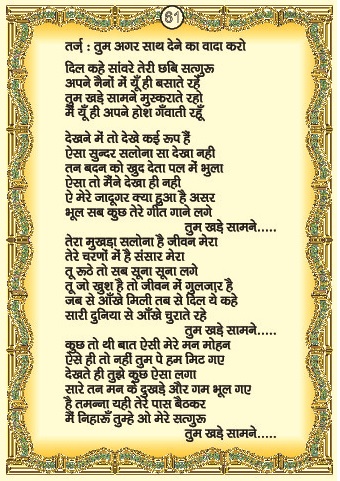 81
तर्ज : तुम अगर साथ देने का वादा करो
दिल कहे सांवरे तेरी छबि सत्गुरू
अपने नैनों में यूँ ही बसाते रहें
तुम खड़े सामने मुस्कराते रहो
मैं यूँ ही अपने होश गँवाती रहूँ
देखने में तो देखे कई रूप हैं
ऐसा सुन्दर सलोना सा देखा नही
तन बदन को खुद देता पल में भुला
ऐसा तो मैंने देखा ही नही
ऐ मेरे जादूगर क्या हुआ है असर
भूल सब कुछ तेरे गीत गाने लगे
तुम खड़े सामने.....
तेरा मुखड़ा सलोना है जीवन मेरा
तेरे चरणों में है संसार मेरा
तू रूठे तो सब सूना सूना लगे
तू जो खुश है तो जीवन में गुलजार है
जब से आँखे मिली तब से दिल ये कहे
सारी दुनिया से आँखे चुराते रहे
तुम खड़े सामने.....
कुछ तो थी बात ऐसी मेरे मन मोहन
ऐसे ही तो नहीं तुम पे हम मिट गए
देखते ही तुझे कुछ ऐसा लगा
सारे तन मन के दुखड़े और गम भूल गए
है तमन्ना यही तेरे पास बैठकर
मैं निहारूँ तुम्हे ओ मेरे सत्गुरू
तुम खड़े सामने.....